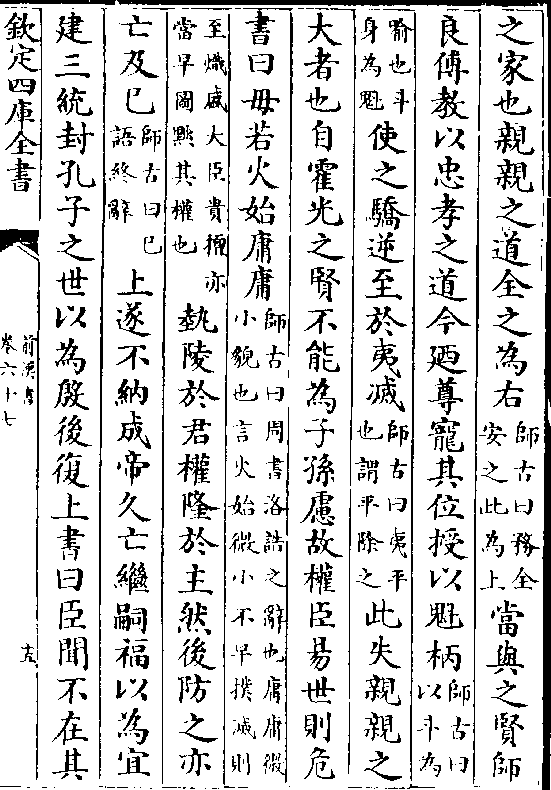 之家也親親之道全之為右師古曰務全安之此為上當與之賢師
良傅教以忠孝之道今廼尊寵其位授以魁柄師古曰以斗為
喻也斗身為魁使之驕逆至於夷滅師古曰夷平也謂平除之此失親親之
大者也自霍光之賢不能為子孫慮故權臣易世則危
書曰毋若火始庸庸師古曰周書洛誥之辭也庸庸微小貌也言火始微小不早撲滅則
至熾盛大臣貴擅亦當早圖黜其權也埶陵於君權隆於主然後防之亦
亡及已師古曰已語終辭上遂不納成帝久亡繼嗣福以為宜
建三統封孔子之世以為殷後復上書曰臣聞不在其
欽定四庫全書
前漢書
卷六十七
十五